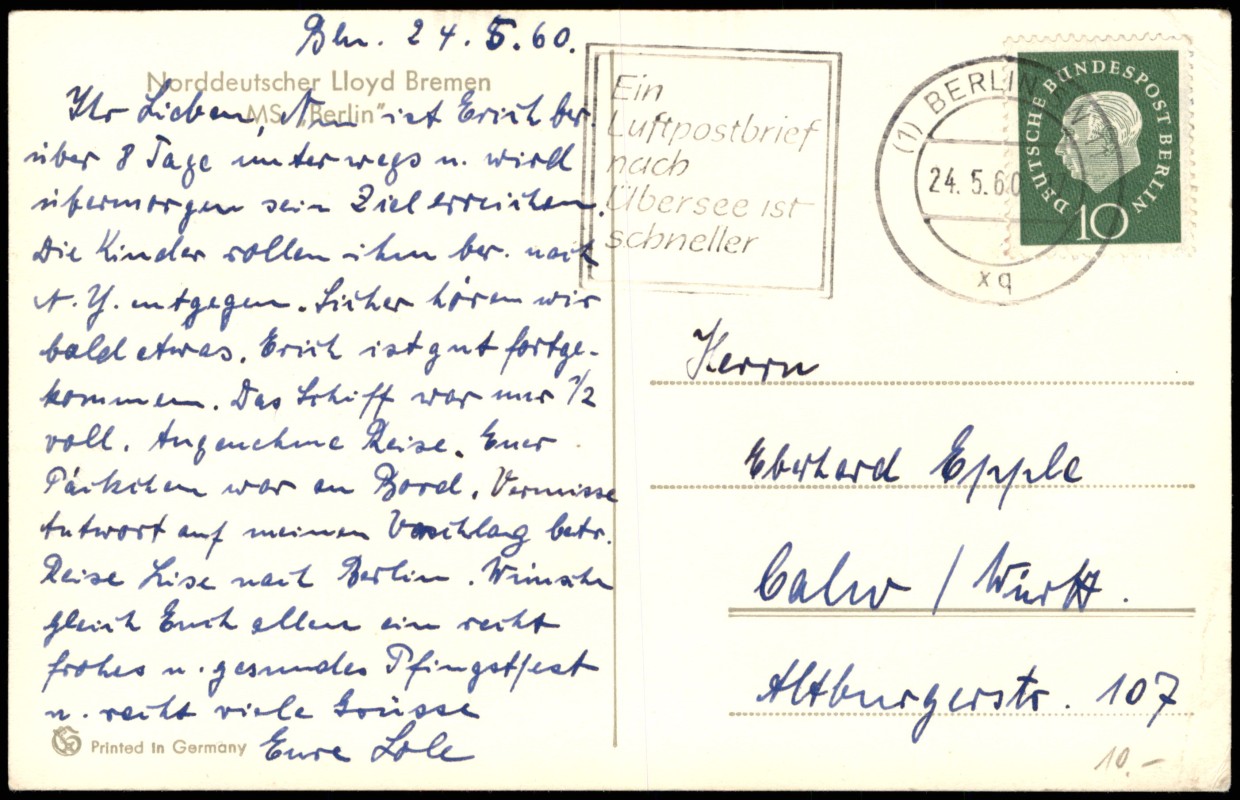 Bln. 24.5.60.
Norddeutscher Lloyd Bremen
MS „Berlin"
Ihr Lieben, Nun ist Erich ber.
über 8 Tage unterwegs u. wird
übermorgen sein Ziel erreichen.
Die Kinder wollen ihm ber. nach
N. Y. entgegen. Sicher hören wir
bald etwas. Erich ist gut fortge-
kommen. Das Schiff war nur 1/2
voll. Angenehme Reise. Euer
Päckchen war an Bord. Vermisse
Antwort auf meinen Vorschlag betr.
Reise Lise nach Berlin. Wünsche
gleich Euch allen ein recht
frohes u. gesundes Pfingstfest
u. recht viele Grüsse
Eure Lole
Printed in Germany
Ein
Luftpostbrief
nach
Übersee ist
schneller
(1) BERLIN
24.5.60
xq
DEUTSCHE BUNDESPOST BERLIN
10
Herrn
Eberhard Epple
Calw / Württ.
Altburgerstr. 107
10.-